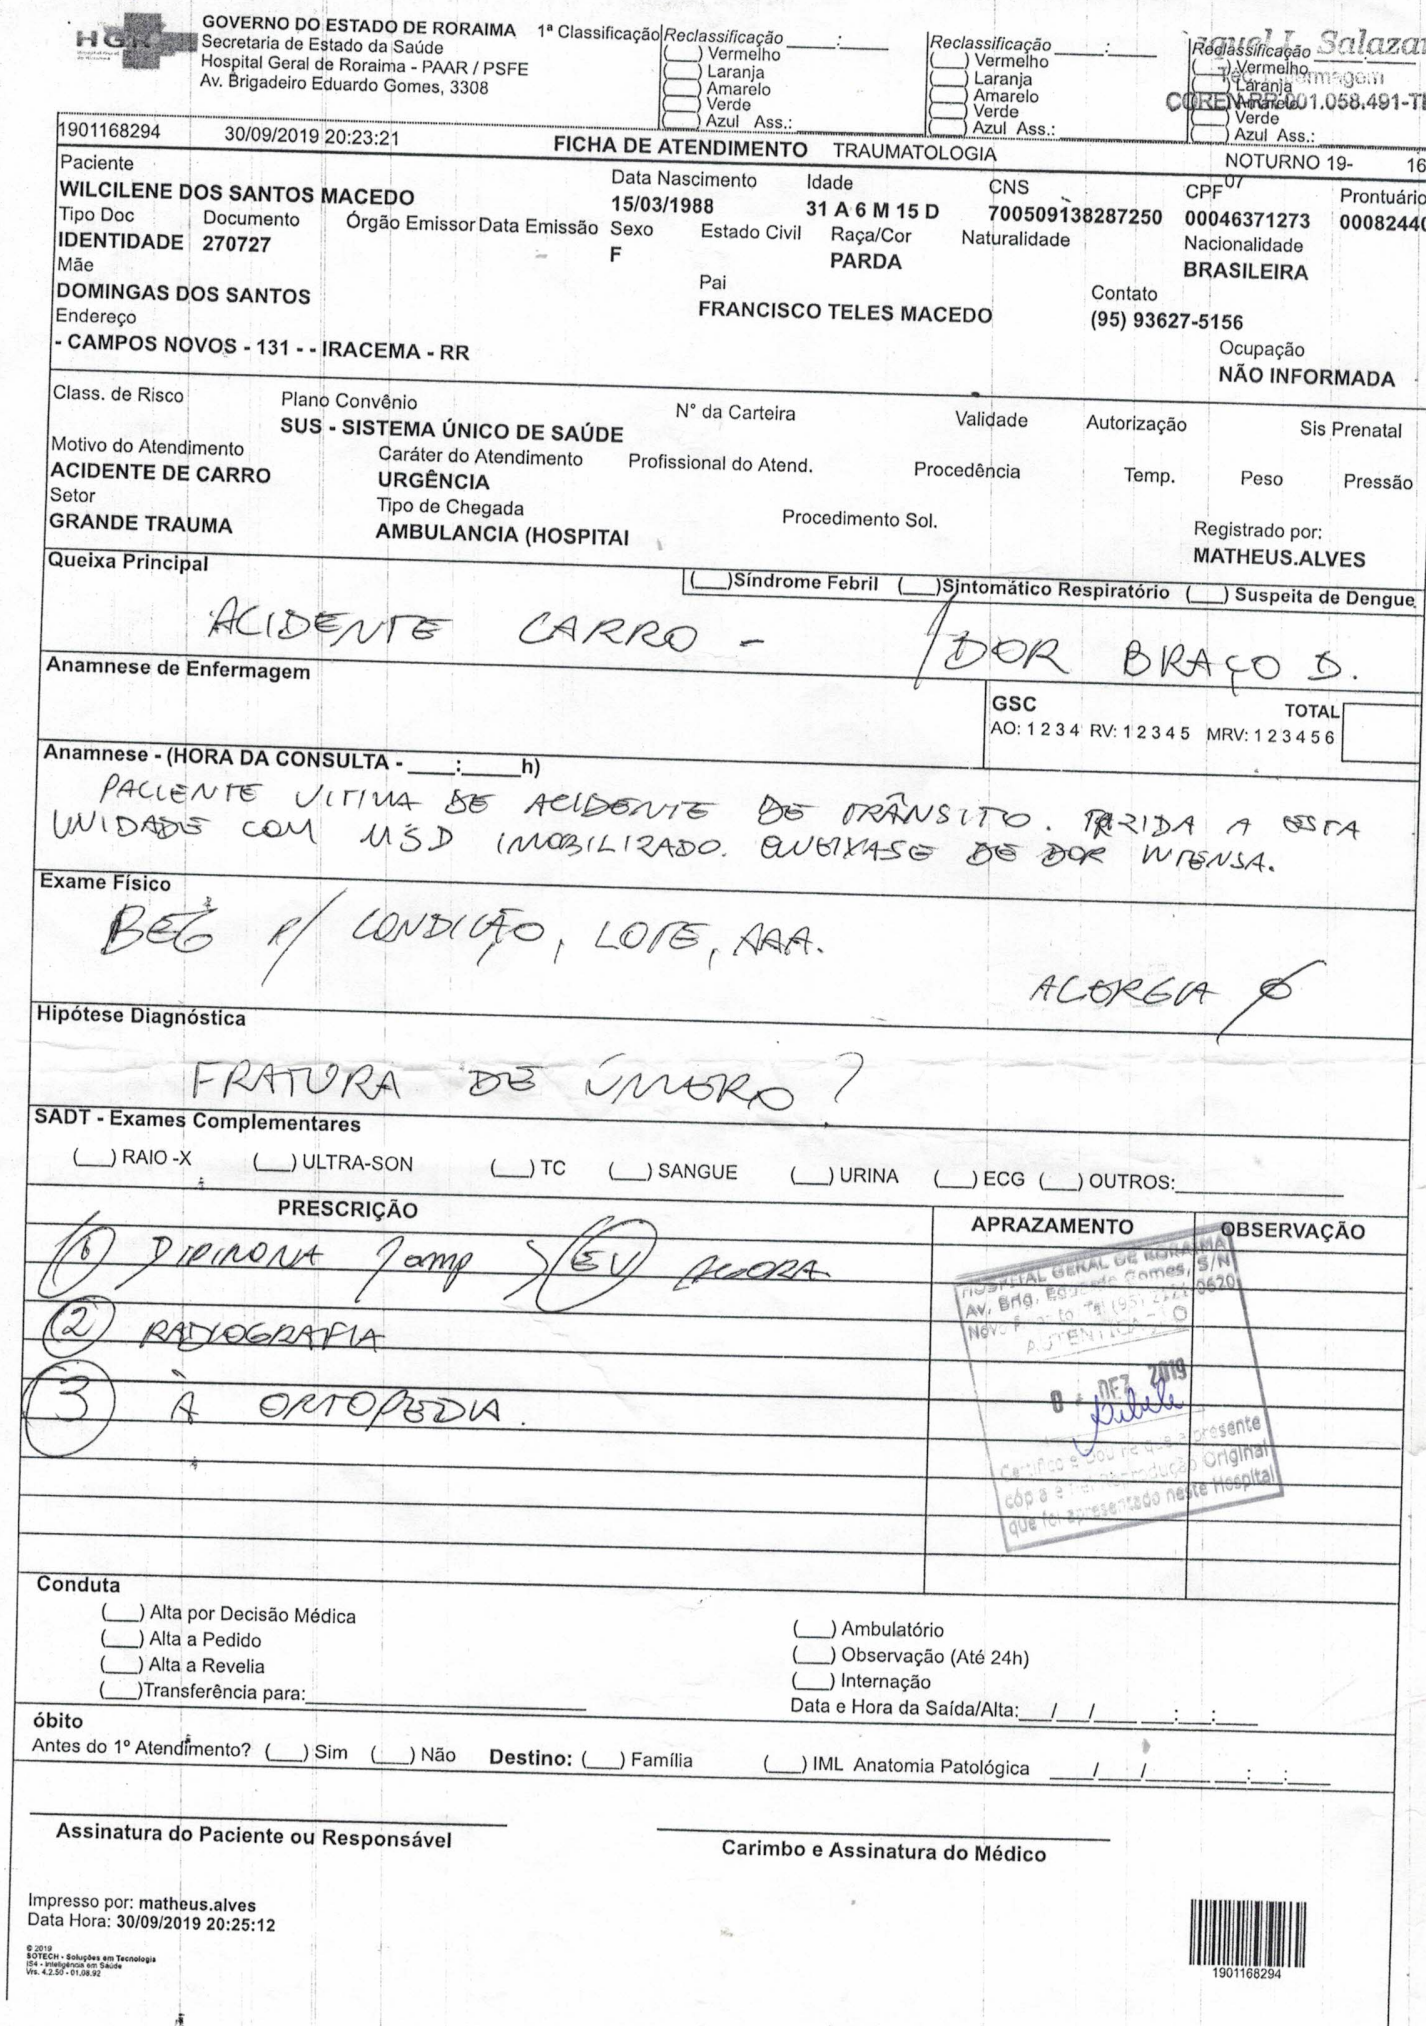 HGR
GOVERNO DO ESTADO DE RORAIMA
Secretaria de Estado da Saúde
Hospital Geral de Roraima - PAAR / PSFE
Av. Brigadeiro Eduardo Gomes, 3308
1ª Classificação
Reclassificação ______:______
(___) Vermelho
(___) Laranja
(___) Amarelo
(___) Verde
(___) Azul Ass.:
Reclassificação ______:______
(___) Vermelho
(___) Laranja
(___) Amarelo
(___) Verde
(___) Azul Ass.:
Reclassificação
(___) Vermelho
(___) Laranja
(___) Amarelo
(___) Verde
(___) Azul Ass.:
Salazar
1901168294 30/09/2019 20:23:21 FICHA DE ATENDIMENTO TRAUMATOLOGIA NOTURNO 19- 16
07
Paciente Data Nascimento Idade CNS CPF Prontuário
WILCILENE DOS SANTOS MACEDO 15/03/1988 31 A 6 M 15 D 700509138287250 00046371273 00082440
Tipo Doc Documento Órgão Emissor Data Emissão Sexo Estado Civil Raça/Cor Naturalidade Nacionalidade
IDENTIDADE 270727 F PARDA BRASILEIRA
Mãe Pai Contato
DOMINGAS DOS SANTOS FRANCISCO TELES MACEDO (95) 93627-5156
Endereço Ocupação
- CAMPOS NOVOS - 131 - - IRACEMA - RR NÃO INFORMADA
Class. de Risco Plano Convênio N° da Carteira Validade Autorização Sis Prenatal
SUS - SISTEMA ÚNICO DE SAÚDE
Motivo do Atendimento Caráter do Atendimento Profissional do Atend. Procedência Temp. Peso Pressão
ACIDENTE DE CARRO URGÊNCIA
Setor Tipo de Chegada Procedimento Sol. Registrado por:
GRANDE TRAUMA AMBULANCIA (HOSPITAI MATHEUS.ALVES
Queixa Principal (___)Síndrome Febril (___)Sintomático Respiratório (___) Suspeita de Dengue
ACIDENTE CARRO - / DOR BRAÇO D.
Anamnese de Enfermagem
GSC TOTAL
AO: 1 2 3 4 RV: 1 2 3 4 5 MRV: 1 2 3 4 5 6
Anamnese - (HORA DA CONSULTA - ____:_____h)
PACIENTE VITIMA DE ACIDENTE DE TRÂNSITO. TRAZIDA A ESTA
UNIDADE COM MSD IMOBILIZADO. QUEIXASE DE DOR INTENSA.
Exame Físico
BEG P/ CONDIÇÃO, LOTE, AAA.
ALERGIA Ø
Hipótese Diagnóstica
FRATURA DE ÚMERO ?
SADT - Exames Complementares
(___) RAIO -X (___) ULTRA-SON (___) TC (___) SANGUE (___) URINA (___) ECG (___) OUTROS:
PRESCRIÇÃO APRAZAMENTO OBSERVAÇÃO
1 DIPIRONA 1 amp EV AGORA
2 RADIOGRAFIA
3 À ORTOPEDIA.
HOSPITAL GERAL DE RORAIMA
Av. Brig. Eduardo Gomes, S/N
DEZ 2019
Certifico e Dou fé que a presente
que foi apresentado neste Hospital
Conduta
(___) Alta por Decisão Médica
(___) Alta a Pedido
(___) Alta a Revelia
(___)Transferência para:
(___) Ambulatório
(___) Observação (Até 24h)
(___) Internação
Data e Hora da Saída/Alta:___/___/____ ___:___:____
óbito
Antes do 1º Atendimento? (___) Sim (___) Não Destino: (___) Família (___) IML Anatomia Patológica ____/___/______ ___:___:____
Assinatura do Paciente ou Responsável Carimbo e Assinatura do Médico
Impresso por: matheus.alves
Data Hora: 30/09/2019 20:25:12
© 2019
SOTECH - Soluções em Tecnologia
IS4 - Inteligência em Saúde
Vrs. 4.2.50 - 01.08.92
1901168294